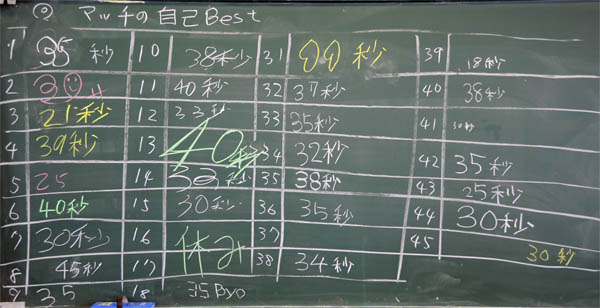 マッチの自己Best
1 35秒 10 38秒 31 99秒 39 18秒
2 20 11 40秒 32 37秒 40 38秒
3 21秒 12 33秒 33 35秒 41 30秒
4 39秒 13 40秒 34 32秒 42 35秒
5 25 14 38秒 35 38秒 43 25秒
6 40秒 15 30秒 36 35秒 44 30秒
7 30秒 16 休み 37 45 30秒
8 45秒 17 38 34秒
9 35 18 35Byo